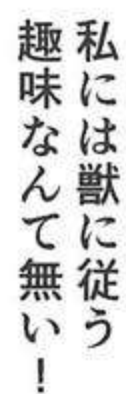 私には獣に従う
趣味なんて無い！